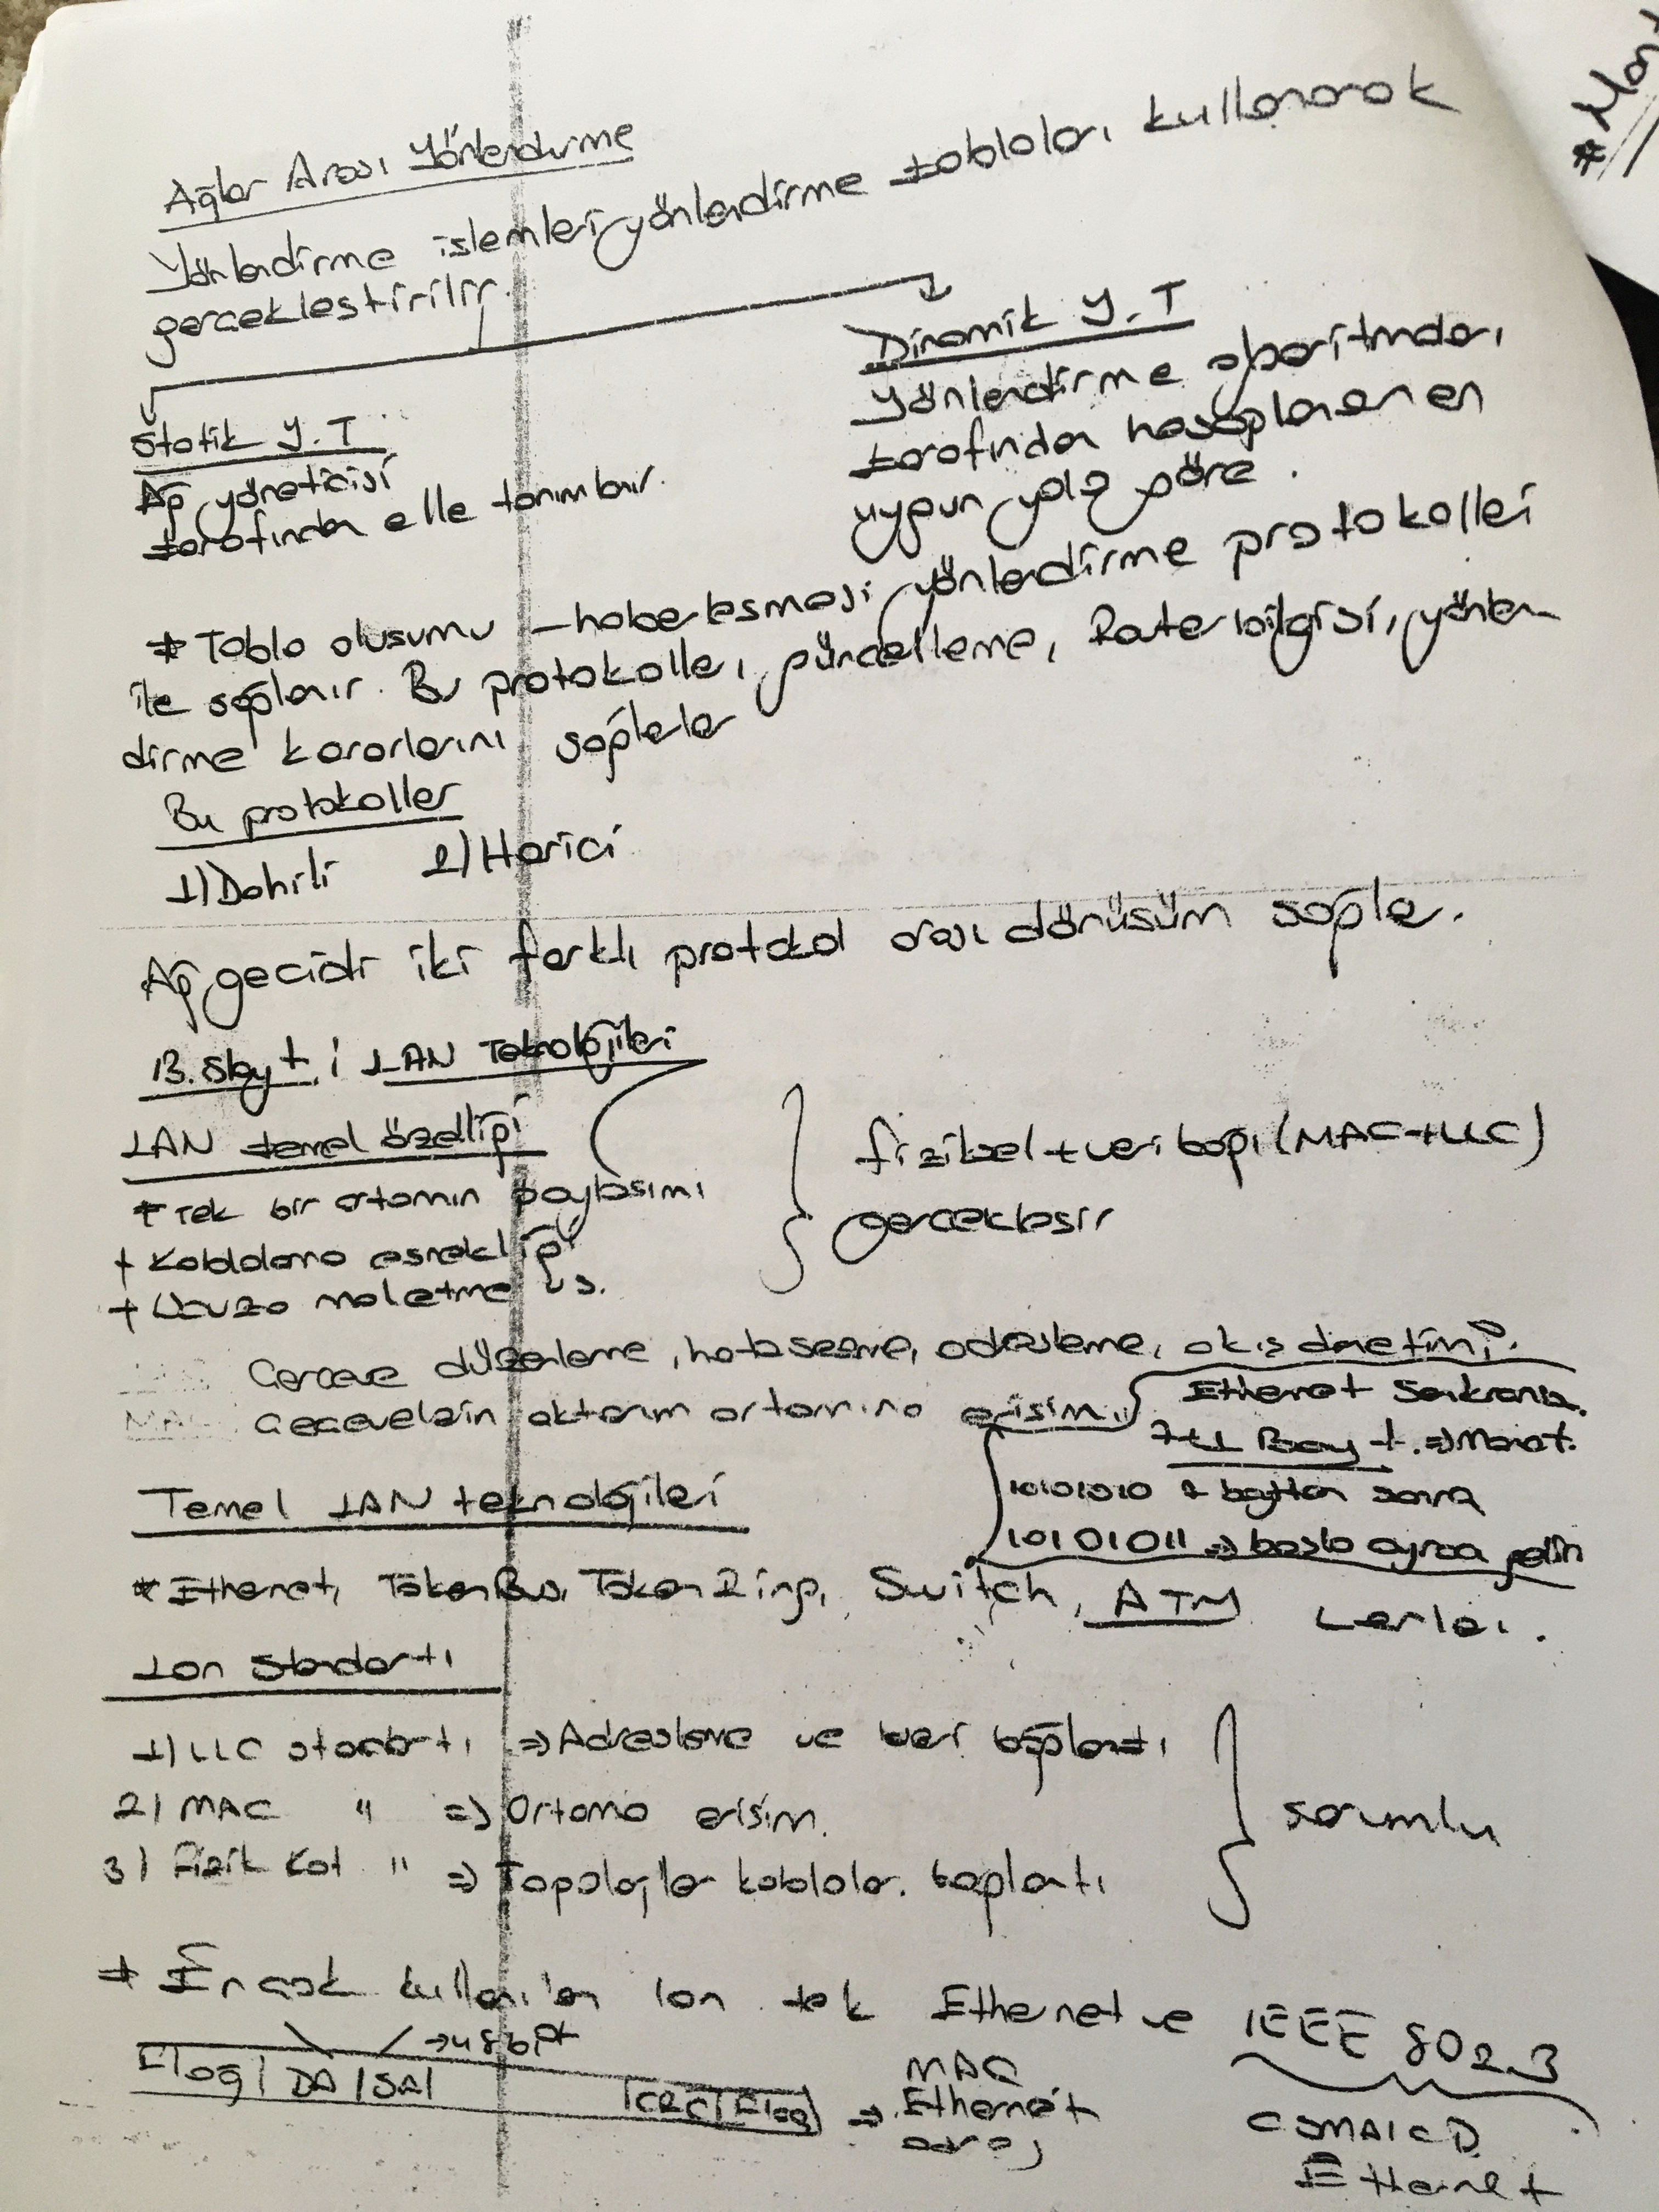 Ağlar Arası Yönlendirme
Yönlendirme işlemleri yönlendirme tabloları kullanarak
gerçekleştirilir.
Statik Y.T
Ağ yöneticisi
tarafından elle tanımlanır.
Dinamik Y.T
Yönlendirme algoritmaları
tarafından hesaplanan en
uygun yola göre.
* Tablo oluşumu – haberleşmesi yönlendirme protokolleri
ile sağlanır. Bu protokoller, güncelleme, Router bilgisi, yönlen-
dirme kararlarını sağlarlar
Bu protokoller
1) Dahili 2) Harici
Ağ geçidi iki farklı protokol arası dönüşüm sağlar.
13. Slayt: LAN Teknolojileri
LAN temel özelliği
+ Tek bir ortamın paylaşımı
+ Kablolama esnekliği
+ Ucuza maletme vs.
fiziksel + veri bağı (MAC+LLC)
gerçekleşir
Çerçeve düzenleme, hata sezme, adresleme, akış denetimi.
MAC Çerçevelerin aktarım ortamına erişimi
Ethernet Senkroniz.
7+1 Bayt. => Manet.
10101010 7 bayttan sonra
10101011 => başla ayracı gelir
Temel LAN teknolojileri
* Ethernet, Token Bus, Token Ring, Switch, ATM Lerler.
Lan Standartı
1) LLC standartı => Adresleme ve veri bağlantı
2) MAC " => Ortama erişim.
3) Fizik Kat " => Topolojiler kablolar. bağlantı
sorumlu
* En çok kullanılan lan tek Ethernet ve IEEE 802.3
CSMA/CD
Ethernet
→ 48 bit
Flag | DA | SA | CRC | Flag => MAC
Ethernet
adresi
* Man